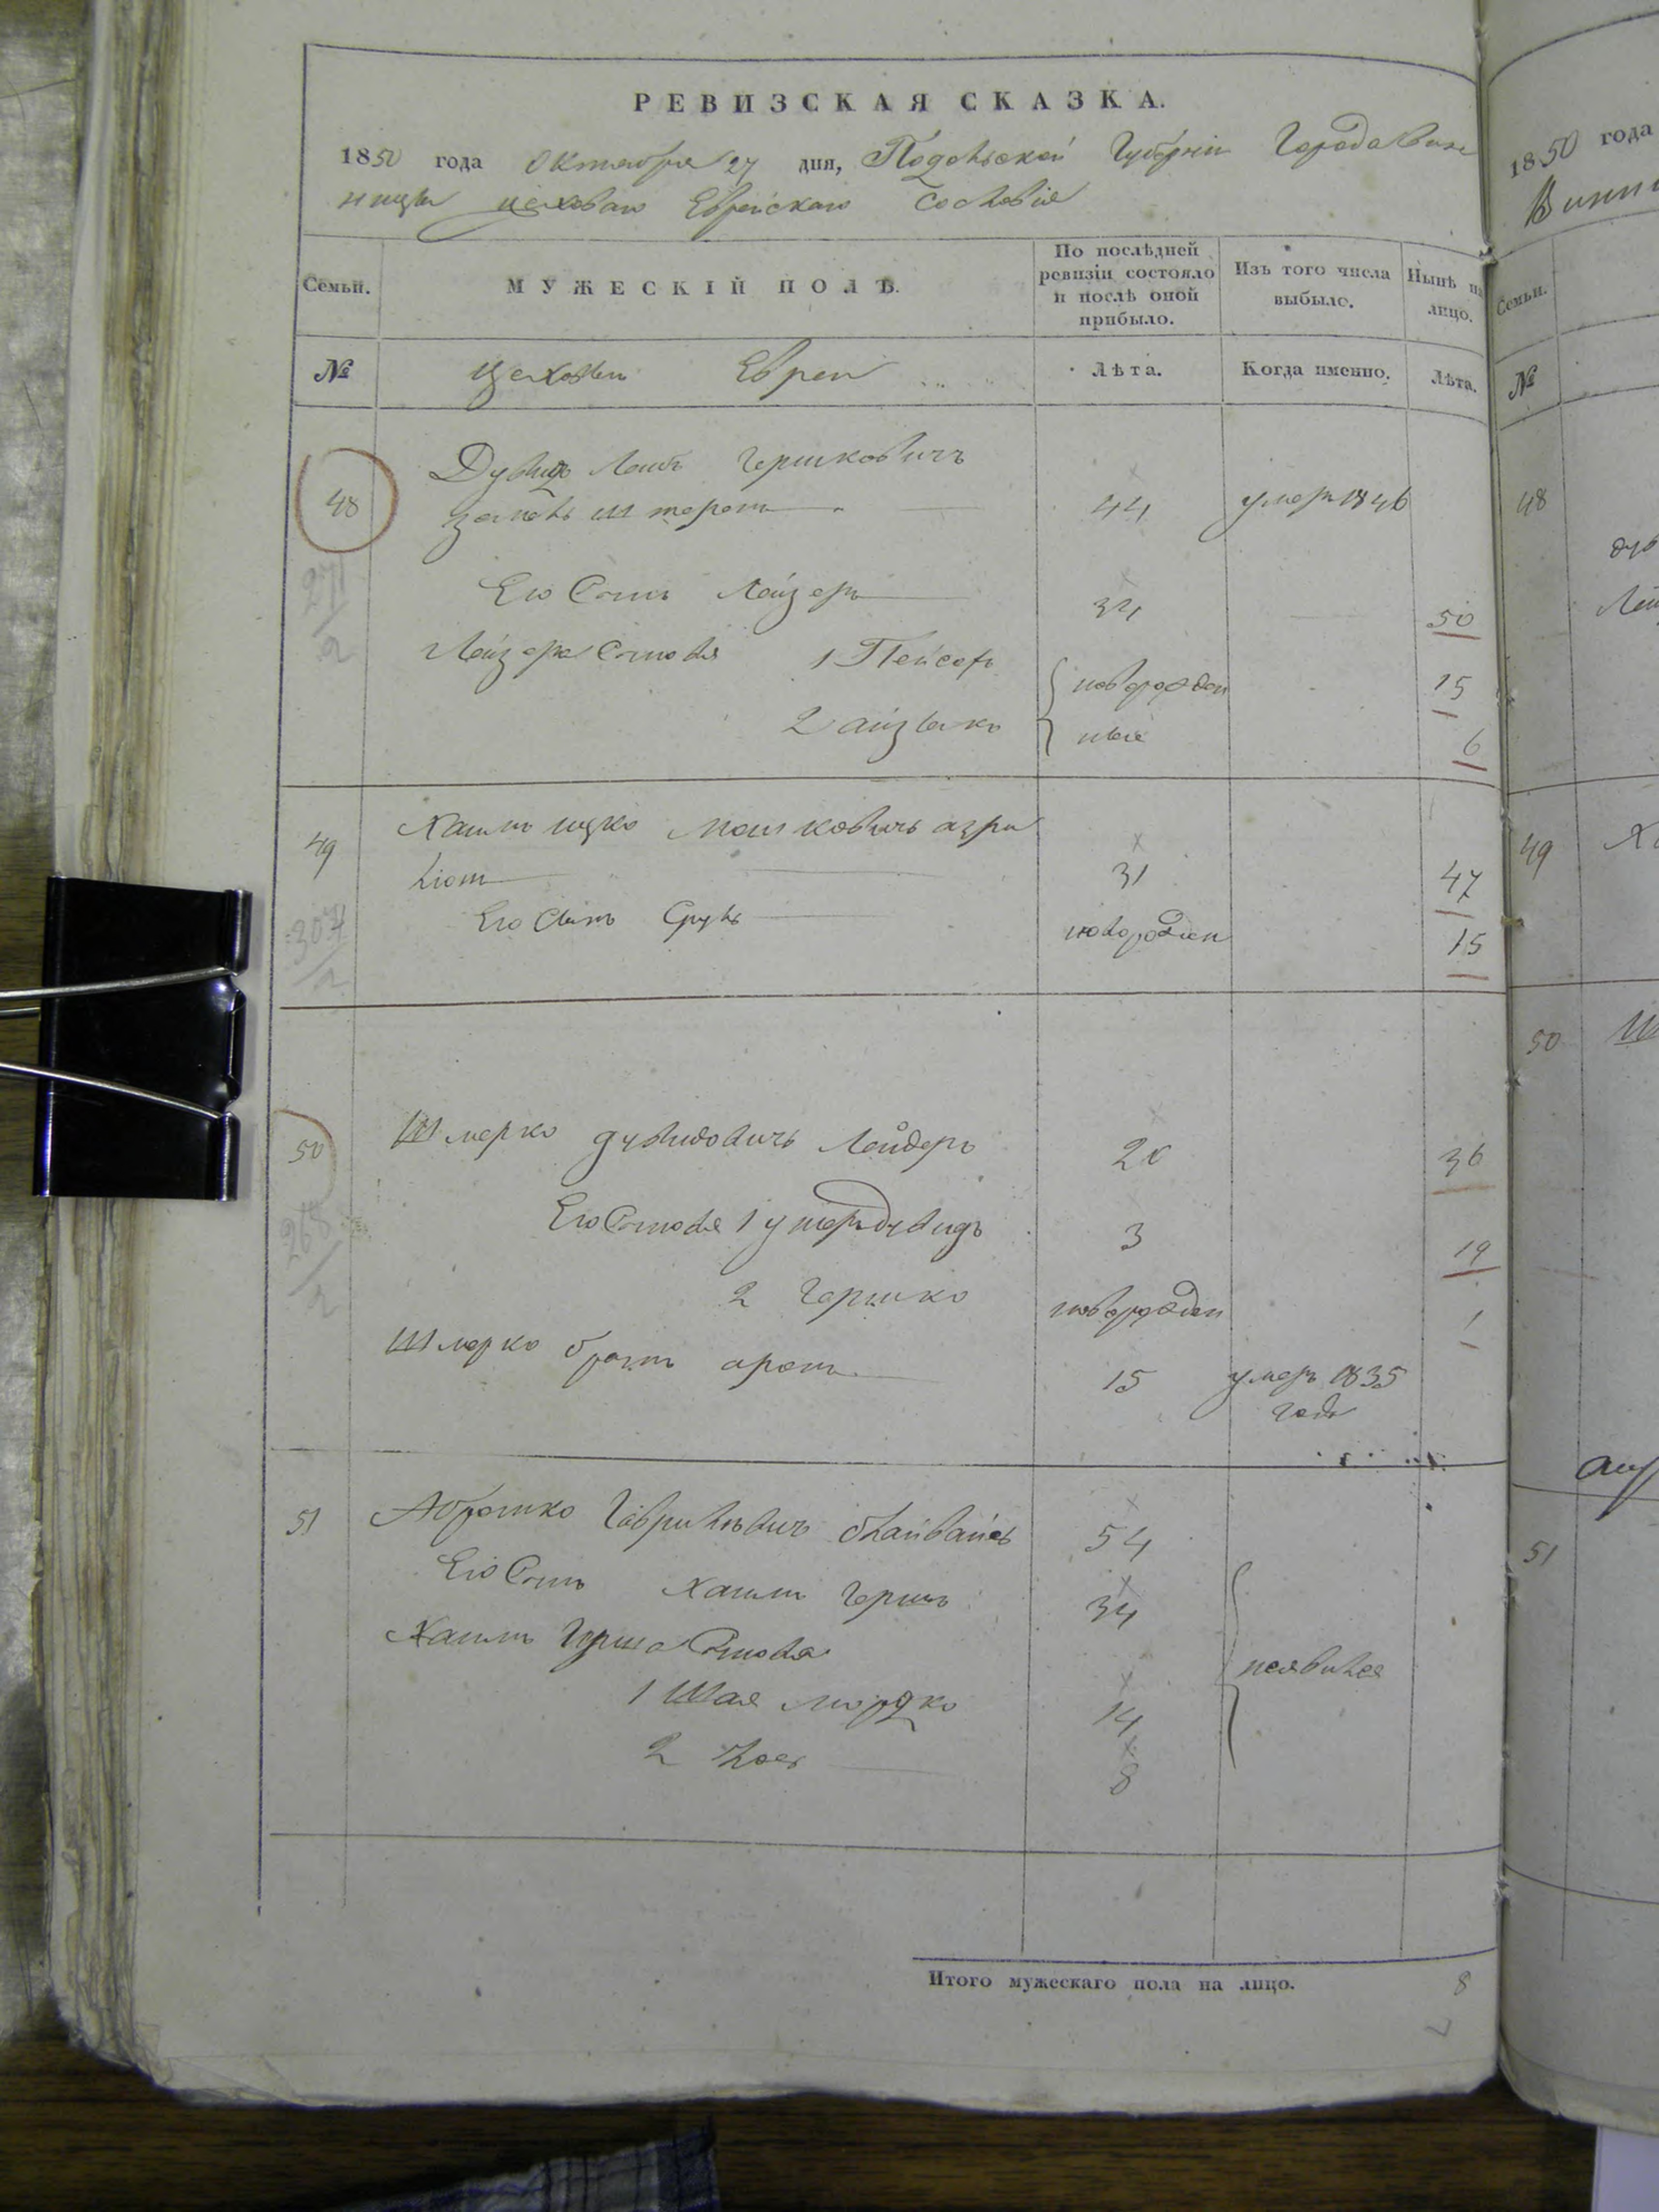 РЕВИЗСКАЯ СКАЗКА.
1850 года Октября 27 дня, Подольской Губерніи Города Вин
ницы цеховаго Еврейскаго Сословія
Семьи.
МУЖЕСКІЙ ПОЛЪ.
По послѣдней
ревизіи состояло
и послѣ оной
прибыло.
Изъ того числа
выбыло.
Нынѣ на
лицо.
№
цеховые Евреи
Лѣта.
Когда именно.
Лѣта.
48
Дувидъ Лейбъ Гершковичъ
44 умеръ 1846
271/2
Его Сынъ Лейзеръ 34 50
Лейзера Сыновья 1 Пейсахъ новорожден 15
2 Айзыкъ ные 6
49 Хаимъ Ицко Мошковичъ
31 47
307/2
Его Сынъ Сруль новорожден 15
50 Шмерко Дувидовичъ Лейдеръ 20 36
268/2
Его Сыновья 1 Дувидъ 3 19
2 Гершко новорожден 1
Шмерко братъ Аронъ 15 умеръ 1835
года
51 Аврамко Гаврилевичъ 54
Его Сынъ Хаимъ Гершъ 34
Хаимъ Герша Сыновья неявился
1 Шая Мордко 14
2 8
Итого мужескаго пола на лицо. 8
1850 года
Винни
Семьи.
№
48
49
50
51